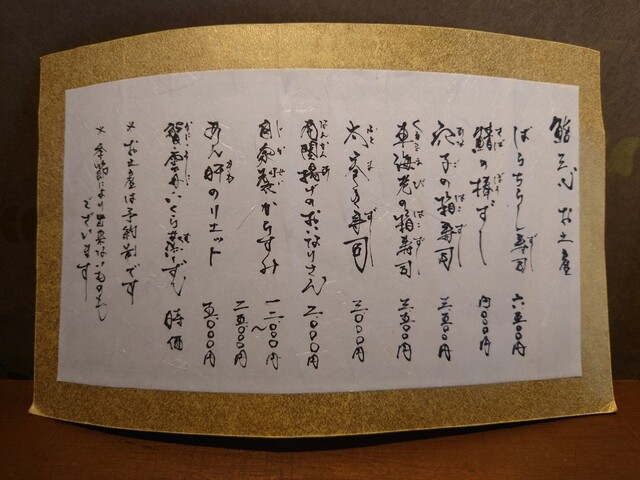 鮨 三心 お土産
ばらちらし寿司 六五〇〇円
鯖の棒ずし 四〇〇〇円
穴子の箱寿司 三五〇〇円
車海老の箱寿司 三五〇〇円
太巻き寿司 三〇〇〇円
南関揚げのおいなりさん 二〇〇〇円
自家製からすみ 一二〇〇〇円〜二五〇〇〇円
あん肝のリエット 五〇〇〇円
時価
※お土産は予約制です
※季節により出来ないものも
ございます